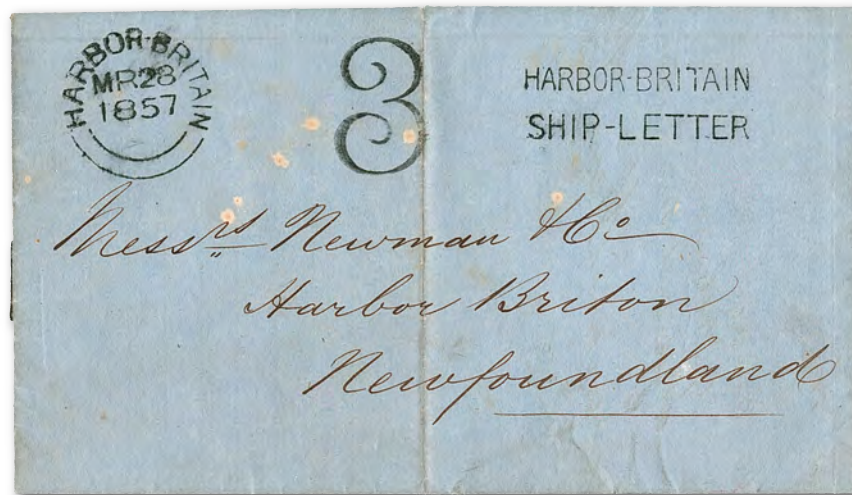 HARBOR-BRITAIN
MR28
1857
3
HARBOR-BRITAIN
SHIP-LETTER
Messrs Newman & Co
Harbor Briton
Newfoundland